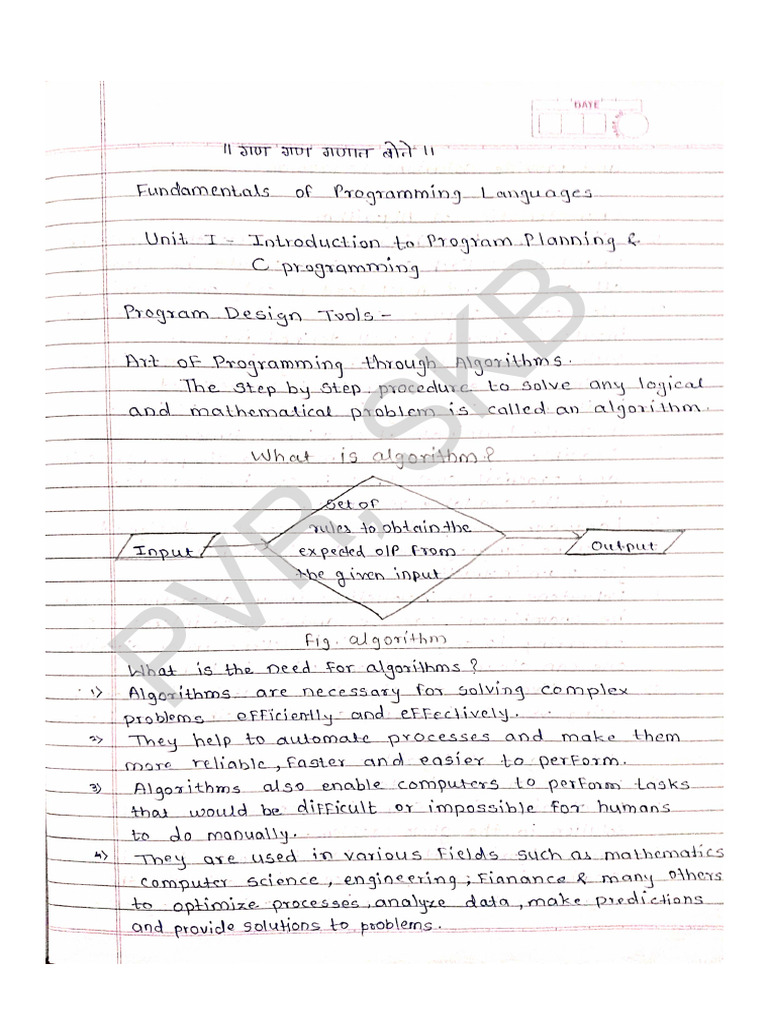 DATE
॥ गण गण गणात बोते ॥
Fundamentals of Programming Languages
Unit I - Introduction to Program Planning &
C programming
Program Design Tools -
Art of Programming through Algorithms.
The step by step procedure to solve any logical
and mathematical problem is called an algorithm.
What is algorithm?
Input
set of
rules to obtain the
expected o/p from
the given input
Output
Fig. algorithm
What is the need for algorithms?
1) Algorithms are necessary for solving complex
problems efficiently and effectively.
2) They help to automate processes and make them
more reliable, faster and easier to perform.
3) Algorithms also enable computers to perform tasks
that would be difficult or impossible for humans
to do manually.
4) They are used in various fields such as mathematics
computer science, engineering, Fianance & many others
to optimize processes, analyze data, make predictions
and provide solutions to problems.
PVR, SKB